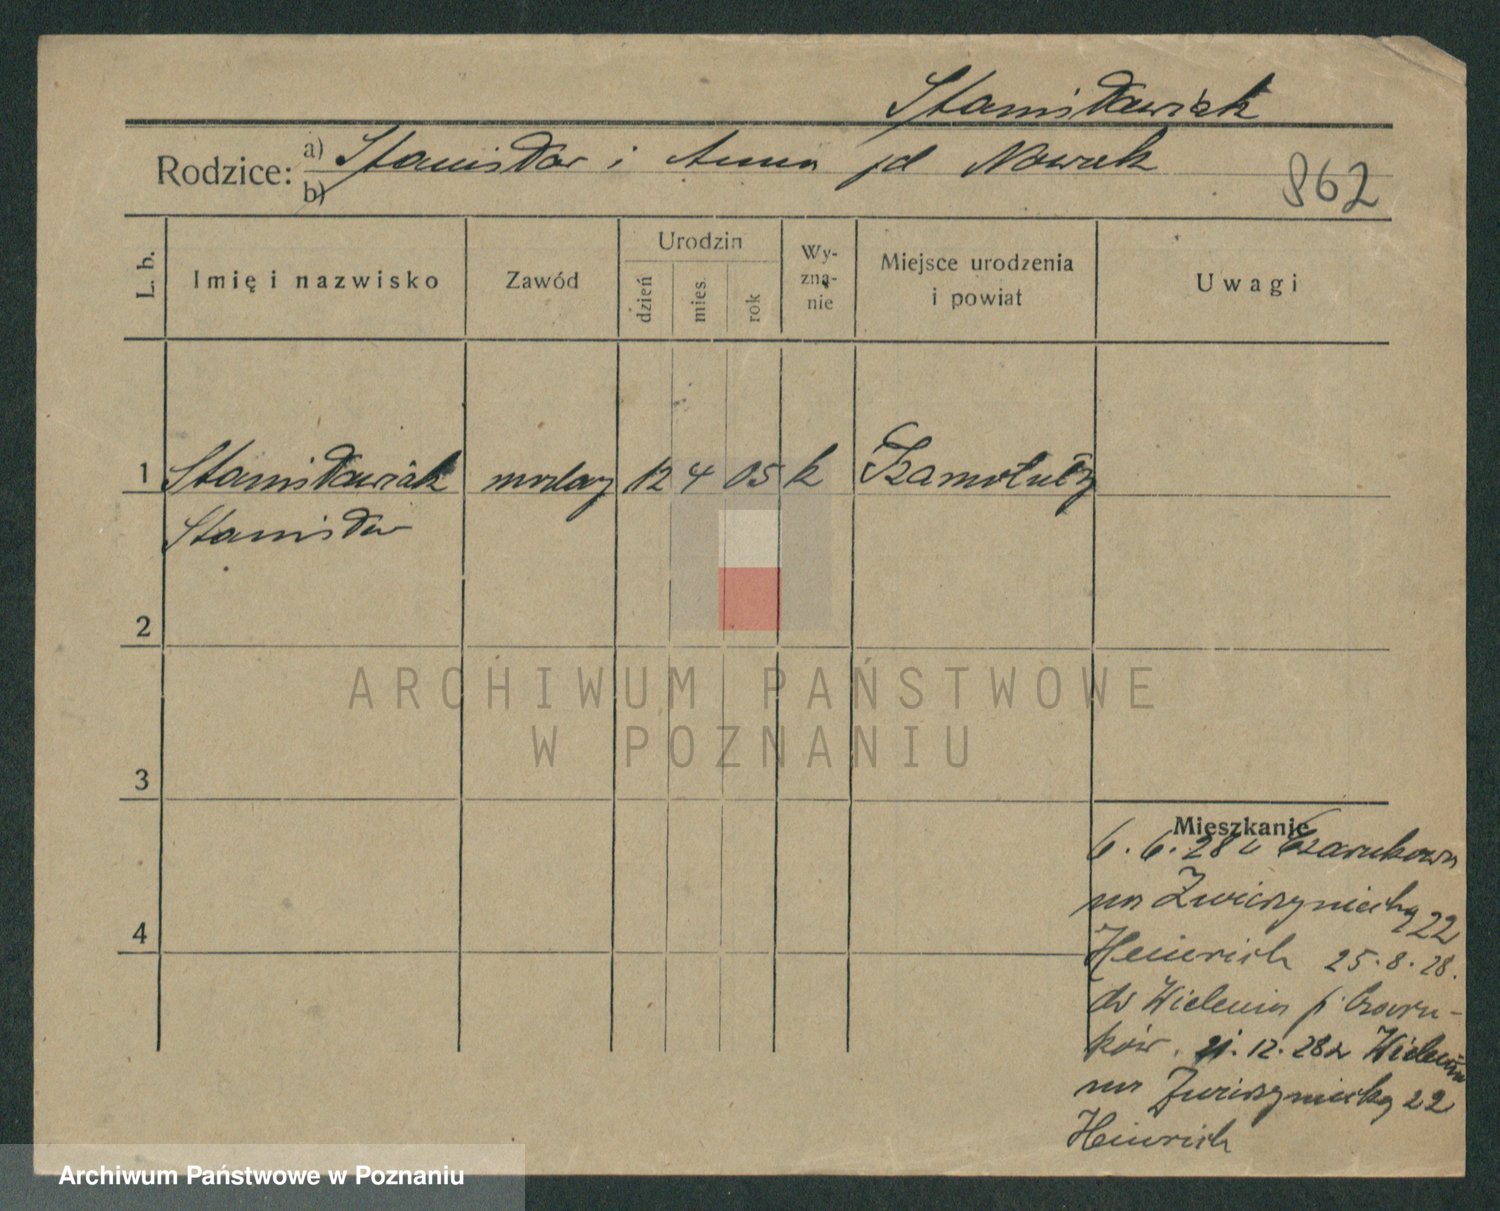 Stanisławiak
Rodzice: a) Stanisław i Anna zd Nowak
b)
862
L. b.
Imię i nazwisko
Zawód
Urodzin
dzień
mies.
rok
Wy-
zna-
nie
Miejsce urodzenia
i powiat
Uwagi
1 Stanisławiak 12 4 05 k Szamotuły
Stanisław
2
3
4
ARCHIWUM PAŃSTWOWE
W POZNANIU
Mieszkanie
6. 6. 28 z Czarnkowa
na Zwierzyniecką 22
Heinrich 25. 8. 28.
do Wielenia p. Czarn-
ków. 21. 12. 28 z Wielenia
na Zwierzyniecką 22
Heinrich
Archiwum Państwowe w Poznaniu